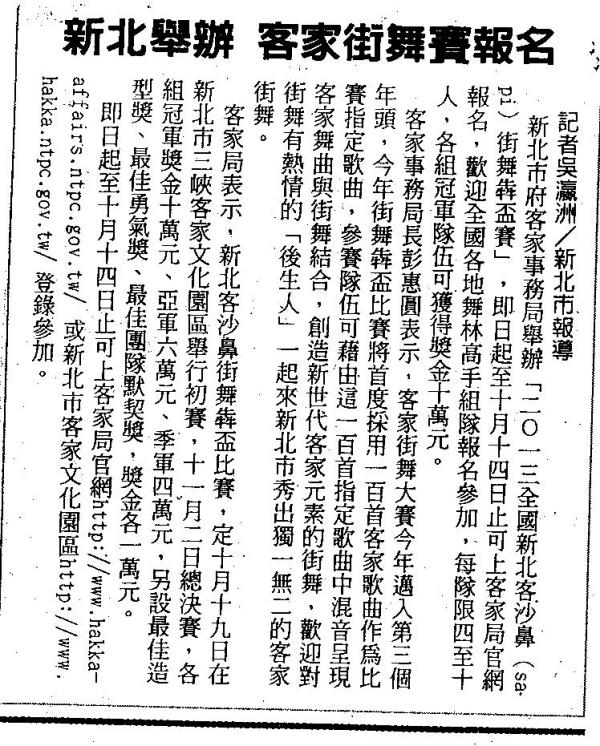 新北舉辦 客家街舞賽報名
記者吳瀛洲／新北市報導
新北市府客家事務局舉辦「二〇一三全國新北客沙鼻（sa-
pi）街舞犇盃賽」，即日起至十月十四日止可上客家局官網
報名，歡迎全國各地舞林高手組隊報名參加，每隊限四至十
人，各組冠軍隊伍可獲得獎金十萬元。
客家事務局長彭惠圓表示，客家街舞大賽今年邁入第三個
年頭，今年街舞犇盃比賽將首度採用一百首客家歌曲作為比
賽指定歌曲，參賽隊伍可藉由這一百首指定歌曲中混音呈現
客家舞曲與街舞結合，創造新世代客家元素的街舞，歡迎對
街舞有熱情的「後生人」一起來新北市秀出獨一無二的客家
街舞。
客家局表示，新北客沙鼻街舞犇盃比賽，定十月十九日在
新北市三峽客家文化園區舉行初賽，十一月二日總決賽，各
組冠軍獎金十萬元、亞軍六萬元、季軍四萬元，另設最佳造
型獎、最佳勇氣獎、最佳團隊默契獎，獎金各一萬元。
即日起至十月十四日止可上客家局官網http://www.hakka-
affairs.ntpc.gov.tw/ 或新北市客家文化園區http://www.
hakka.ntpc.gov.tw/ 登錄參加。